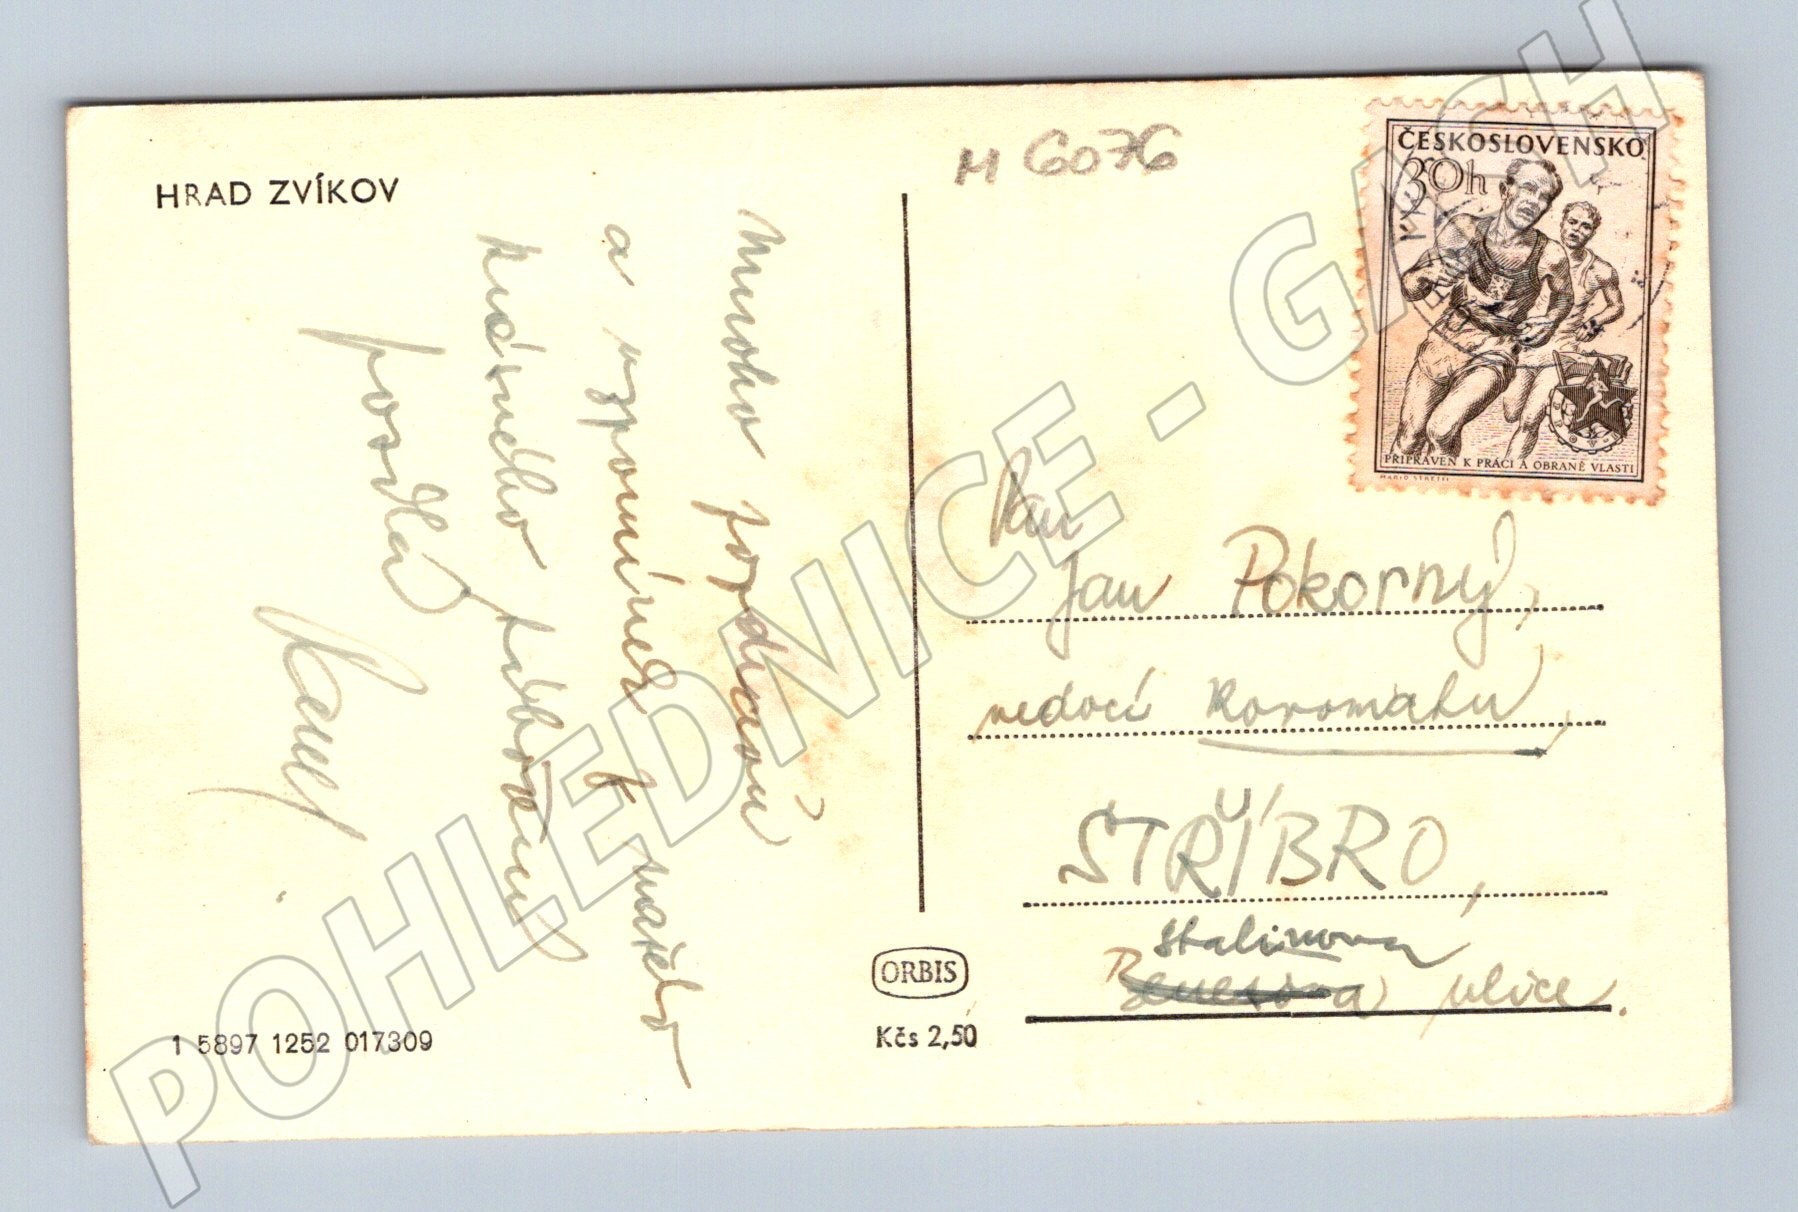 HRAD ZVÍKOV
M 6076
ČESKOSLOVENSKO
30h
PŘIPRAVEN K PRÁCI A OBRANĚ VLASTI
Mnoho pozdravů
a vzpomínek z našeho
krásného
posílá
Pan
Jan Pokorný,
STŘÍBRO,
Stalinova
Benešova ulice.
ORBIS
Kčs 2,50
1 5897 1252 017309
POHLEDNICE - GASH